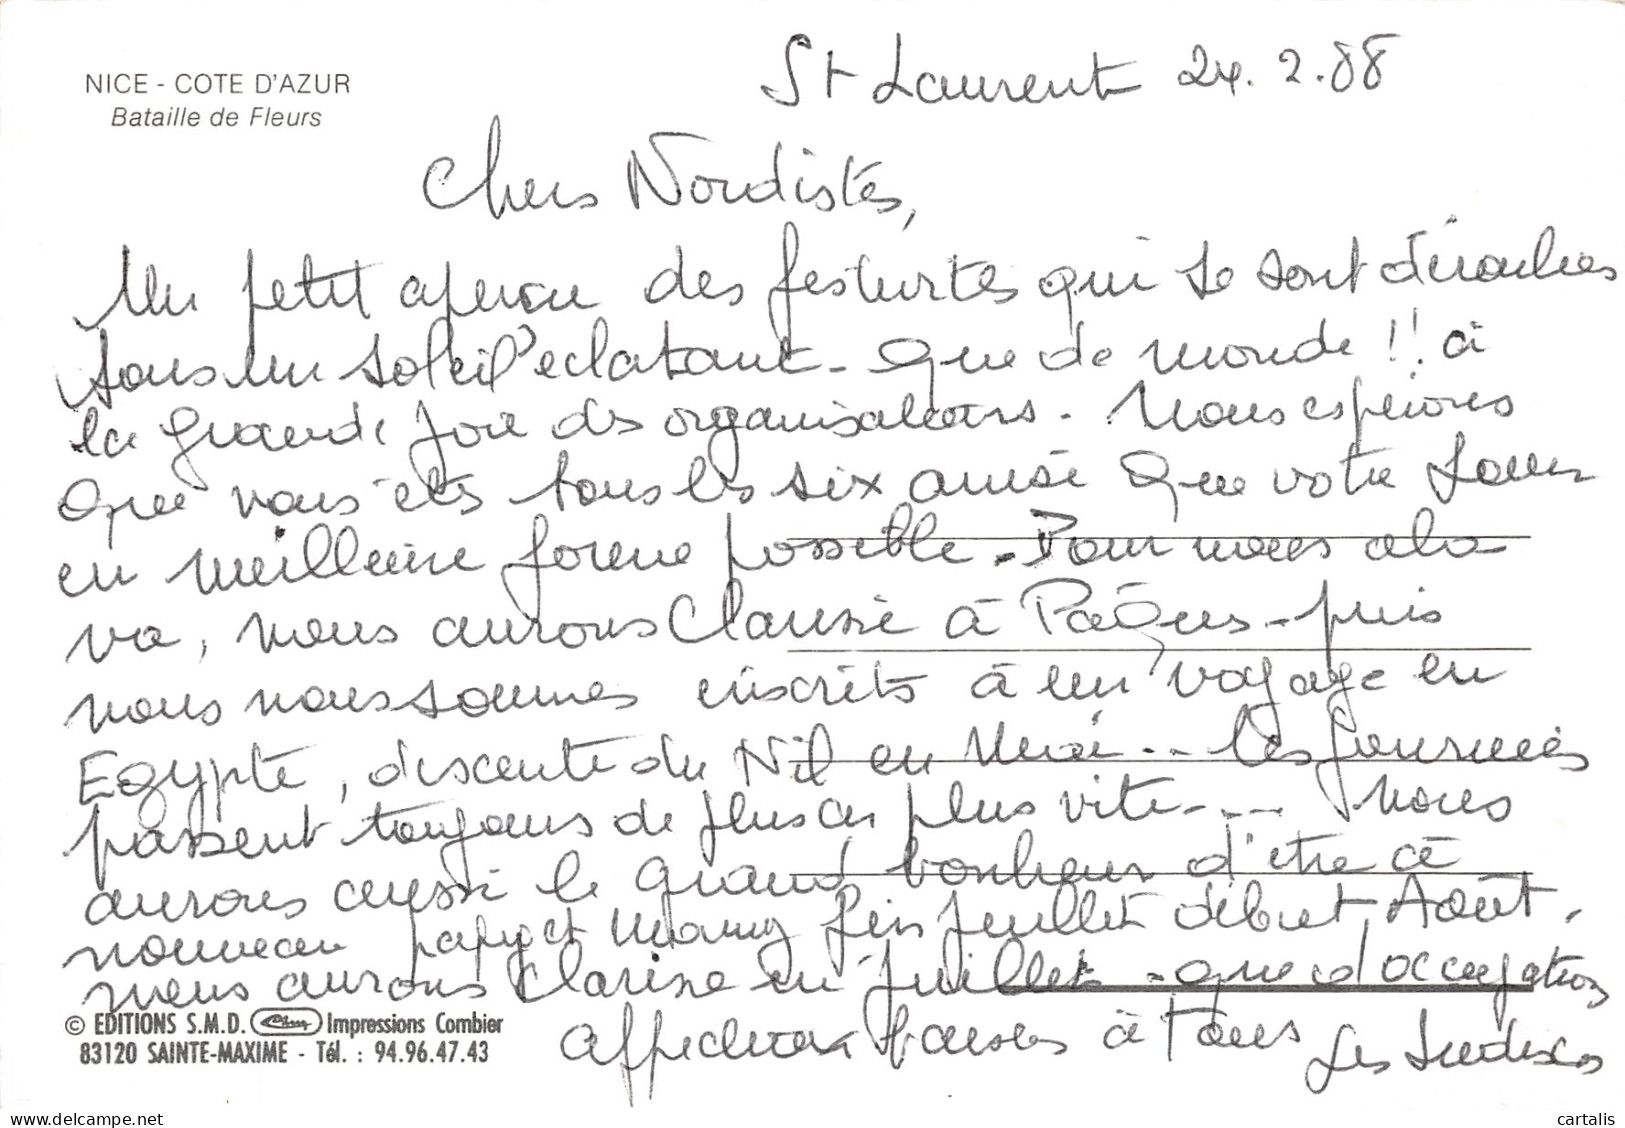 NICE - COTE D'AZUR
Bataille de Fleurs
St Laurent 24.2.88
Chers Nordistes,
Un petit aperçu des festivités qui se sont déroulées
sous un soleil éclatant - Que de monde !! à
la grande joie des organisateurs. Nous espérons
que vous êtes tous les six ainsi que votre
en meilleure forme possible. Pour nous cela
va, nous aurons Clarisse à Pâques - puis
nous nous sommes inscrits à un voyage en
Egypte, descente du Nil en Mai... Les journées
passent toujours de plus en plus vite.... Nous
aurons aussi le grand bonheur d'être à
nouveau papy et Mamy fin Juillet début Août.
nous aurons Clarisse en Juillet - que d'occupations
© EDITIONS S.M.D. Impressions Combier
83120 SAINTE-MAXIME - Tél. : 94.96.47.43
Affectueux baisers à Tous Les Sudistes
cartalis